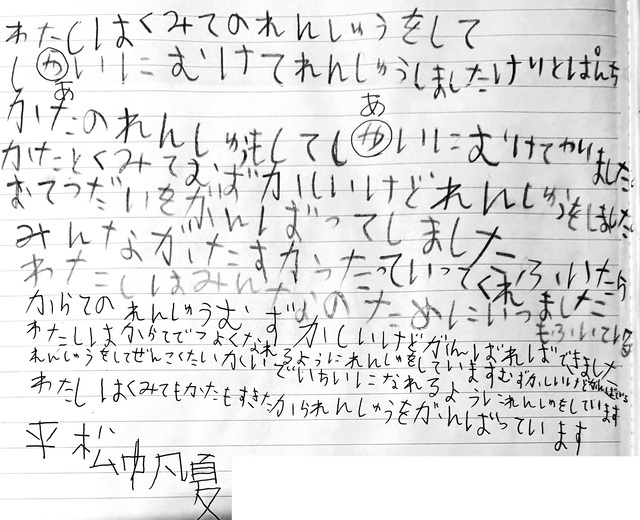 わたしはくみてのれんしゅうをして
しあいにむけてれんしゅうしましたけりとぱんち
かたのれんしゅうもしてしあいにむけてかりました
かたとくみてむずかしいけどれんしゅうをしました
むてつだいをがんばってしました
みんながたすかったっていってくれました
わたしはみんなのためにふいたら
からてのれんしゅうむずかしいけどがんばればできました
わたしはからてでつよくなれるようにれんしゅをしています
れんしゅうをしてぜんこくたいかいでいちいになれるようにれんしゅをしています
わたしはくみてもかたもすきだかられんしゅうをがんばっています
平松帆夏